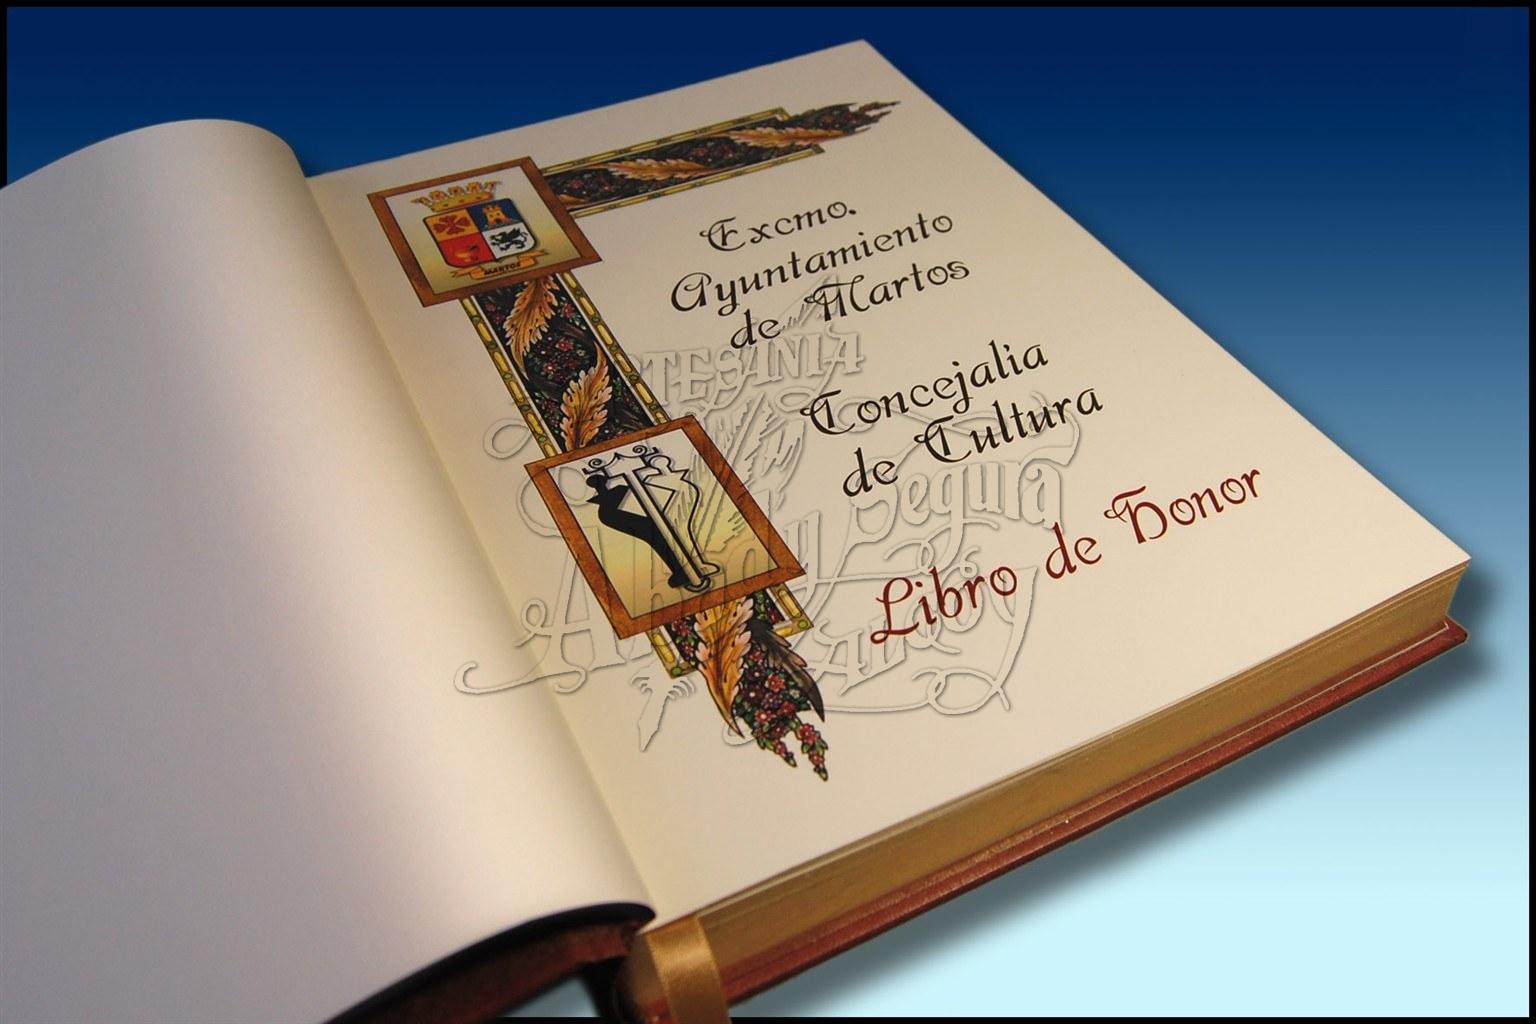 MARTOS
Excmo.
Ayuntamiento
de Martos
Concejalia
de Cultura
Libro de Honor
ARTESANIA
Segura
ALCOY